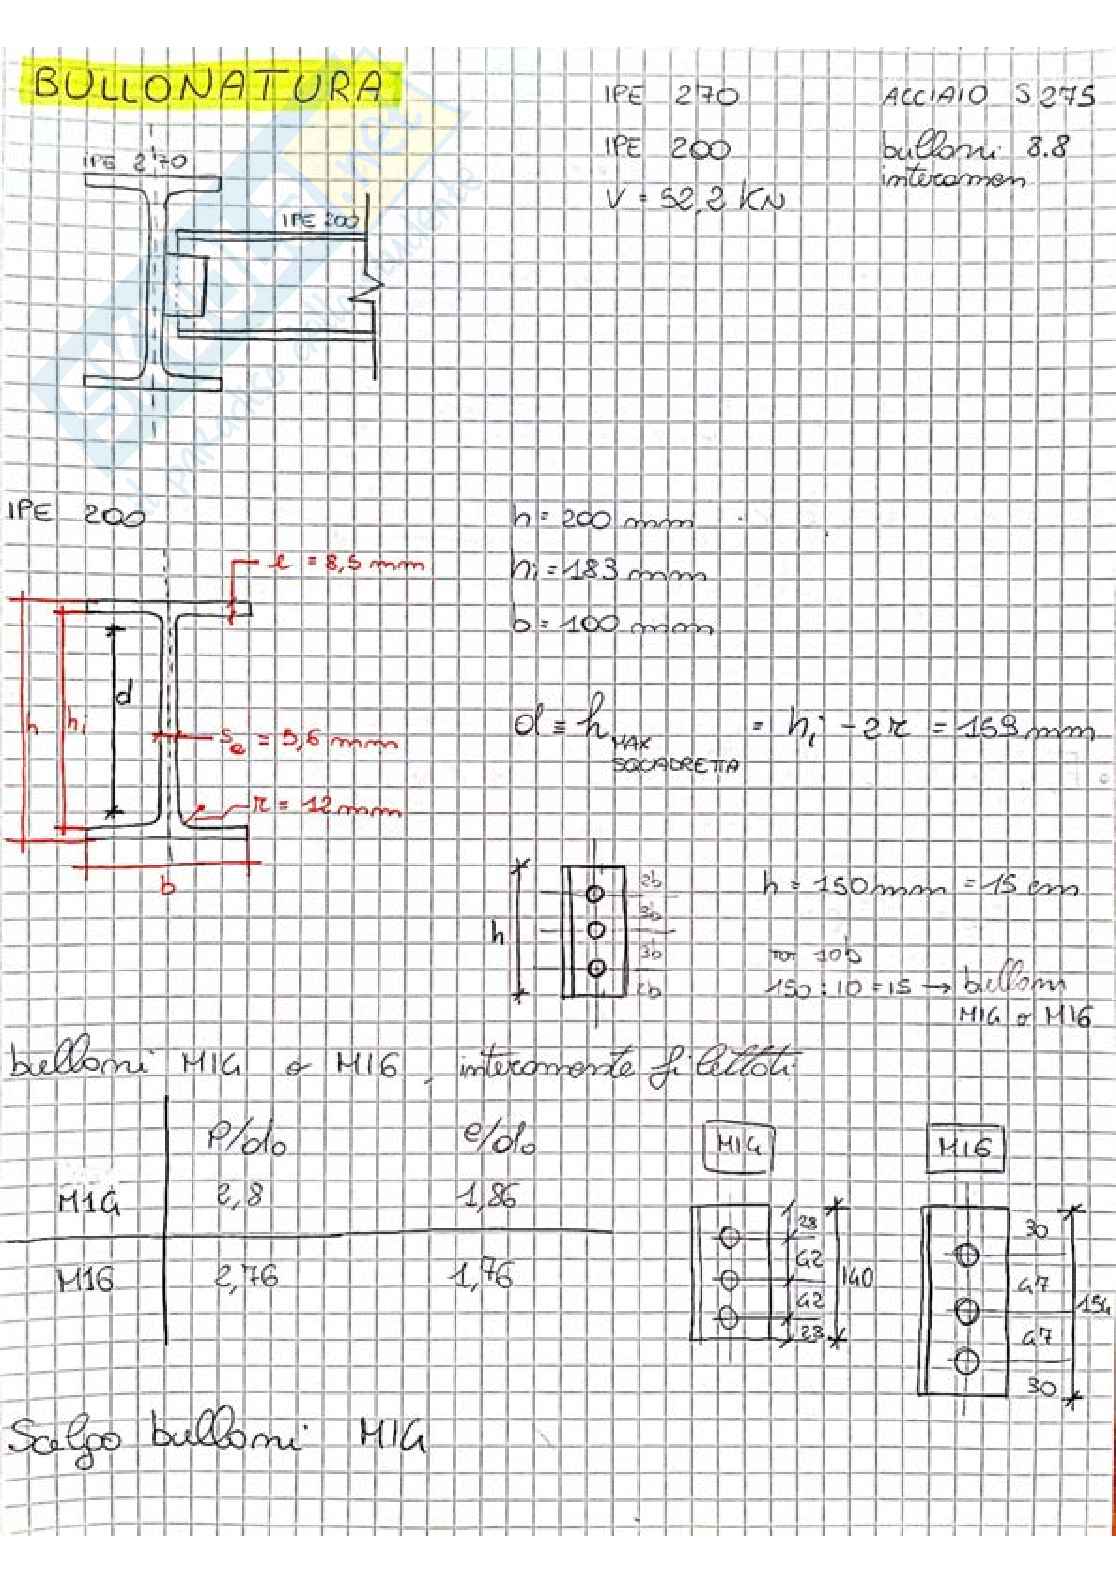 BULLONATURA
IPE 270 ACCIAIO S 275
IPE 200 bulloni 8.8
interamen
V = 52,2 KN
IPE 270
IPE 200
IPE 200
h = 200 mm
e = 8,5 mm
hi = 183 mm
b = 100 mm
d
h
hi
d = h MAX SQUADRETTA = hi - 2r = 159 mm
se = 5,6 mm
r = 12 mm
b
h
2b
3b
3b
2b
h = 150 mm = 15 cm
tot 10b
150 : 10 = 15 → bulloni
M14 o M16
bulloni M14 o M16, interamente filettati
P/do e/do
M14 2,8 1,86
M16 2,76 1,76
M14
28
42
42
28
140
M16
30
47
47
30
154
Scelgo bulloni M14